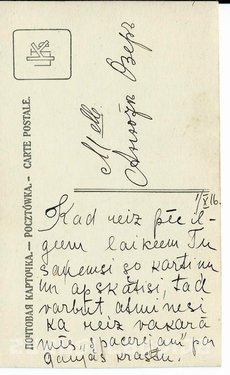 ПОЧТОВАЯ КАРТОЧКА. — POCZTÓWKA. — CARTE POSTALE.
M elle
Озеръ
1/V 16.
Kad reiz pēc il-
giem laikeem Tu
saņemsi šo kartiņu
un apskatisi, tad
varbūt atminēsi
ka reiz vakarā
mēs „spacerējām" par
Gaujas krastu.